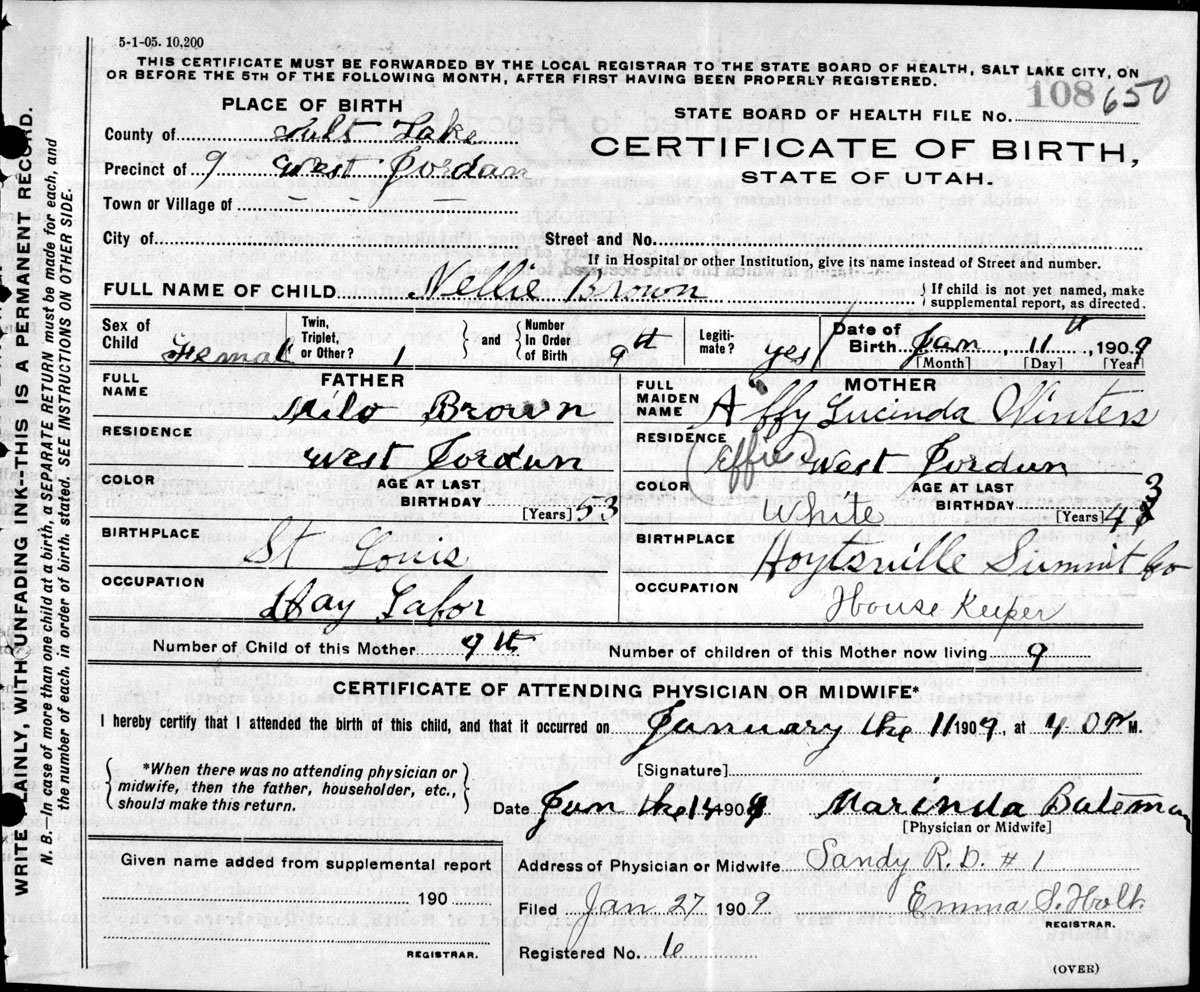 5-1-05. 10,200
THIS CERTIFICATE MUST BE FORWARDED BY THE LOCAL REGISTRAR TO THE STATE BOARD OF HEALTH, SALT LAKE CITY, ON
OR BEFORE THE 5TH OF THE FOLLOWING MONTH, AFTER FIRST HAVING BEEN PROPERLY REGISTERED.
PLACE OF BIRTH
STATE BOARD OF HEALTH FILE No. 108 650
County of Salt Lake
CERTIFICATE OF BIRTH,
Precinct of 9 West Jordan
STATE OF UTAH.
Town or Village of — — —
City of
Street and No.
If in Hospital or other Institution, give its name instead of Street and number.
FULL NAME OF CHILD Nellie Brown
{ If child is not yet named, make
supplemental report, as directed.
Sex of Child Female
Twin, Triplet, or Other? 1 } and { Number In Order of Birth 9th
Legiti-mate? yes
Date of Birth Jan, 11th, 1909
[Month] [Day] [Year]
FATHER
FULL NAME Milo Brown
RESIDENCE West Jordan
COLOR AGE AT LAST BIRTHDAY 53 [Years]
BIRTHPLACE St Louis
OCCUPATION Day Labor
MOTHER
FULL MAIDEN NAME Affy Lucinda Winters
(Effie)
RESIDENCE West Jordan
COLOR White AGE AT LAST BIRTHDAY 43 [Years]
BIRTHPLACE Hoytsville Summit Co
OCCUPATION House Keeper
Number of Child of this Mother 9th Number of children of this Mother now living 9
CERTIFICATE OF ATTENDING PHYSICIAN OR MIDWIFE*
I hereby certify that I attended the birth of this child, and that it occurred on January the 11 1909, at 4 M.
{ *When there was no attending physician or
midwife, then the father, householder, etc.,
should make this return. }
[Signature]
Date Jan the 14 1909 Marinda Bateman
[Physician or Midwife]
Given name added from supplemental report
190
REGISTRAR.
Address of Physician or Midwife Sandy R.D. # 1
Filed Jan 27 1909 Emma S. Holt.
REGISTRAR.
Registered No. 6
(OVER)
WRITE PLAINLY, WITH UNFADING INK--THIS IS A PERMANENT RECORD.
N. B.—In case of more than one child at a birth, a SEPARATE RETURN must be made for each, and
the number of each, in order of birth, stated. SEE INSTRUCTIONS ON OTHER SIDE.